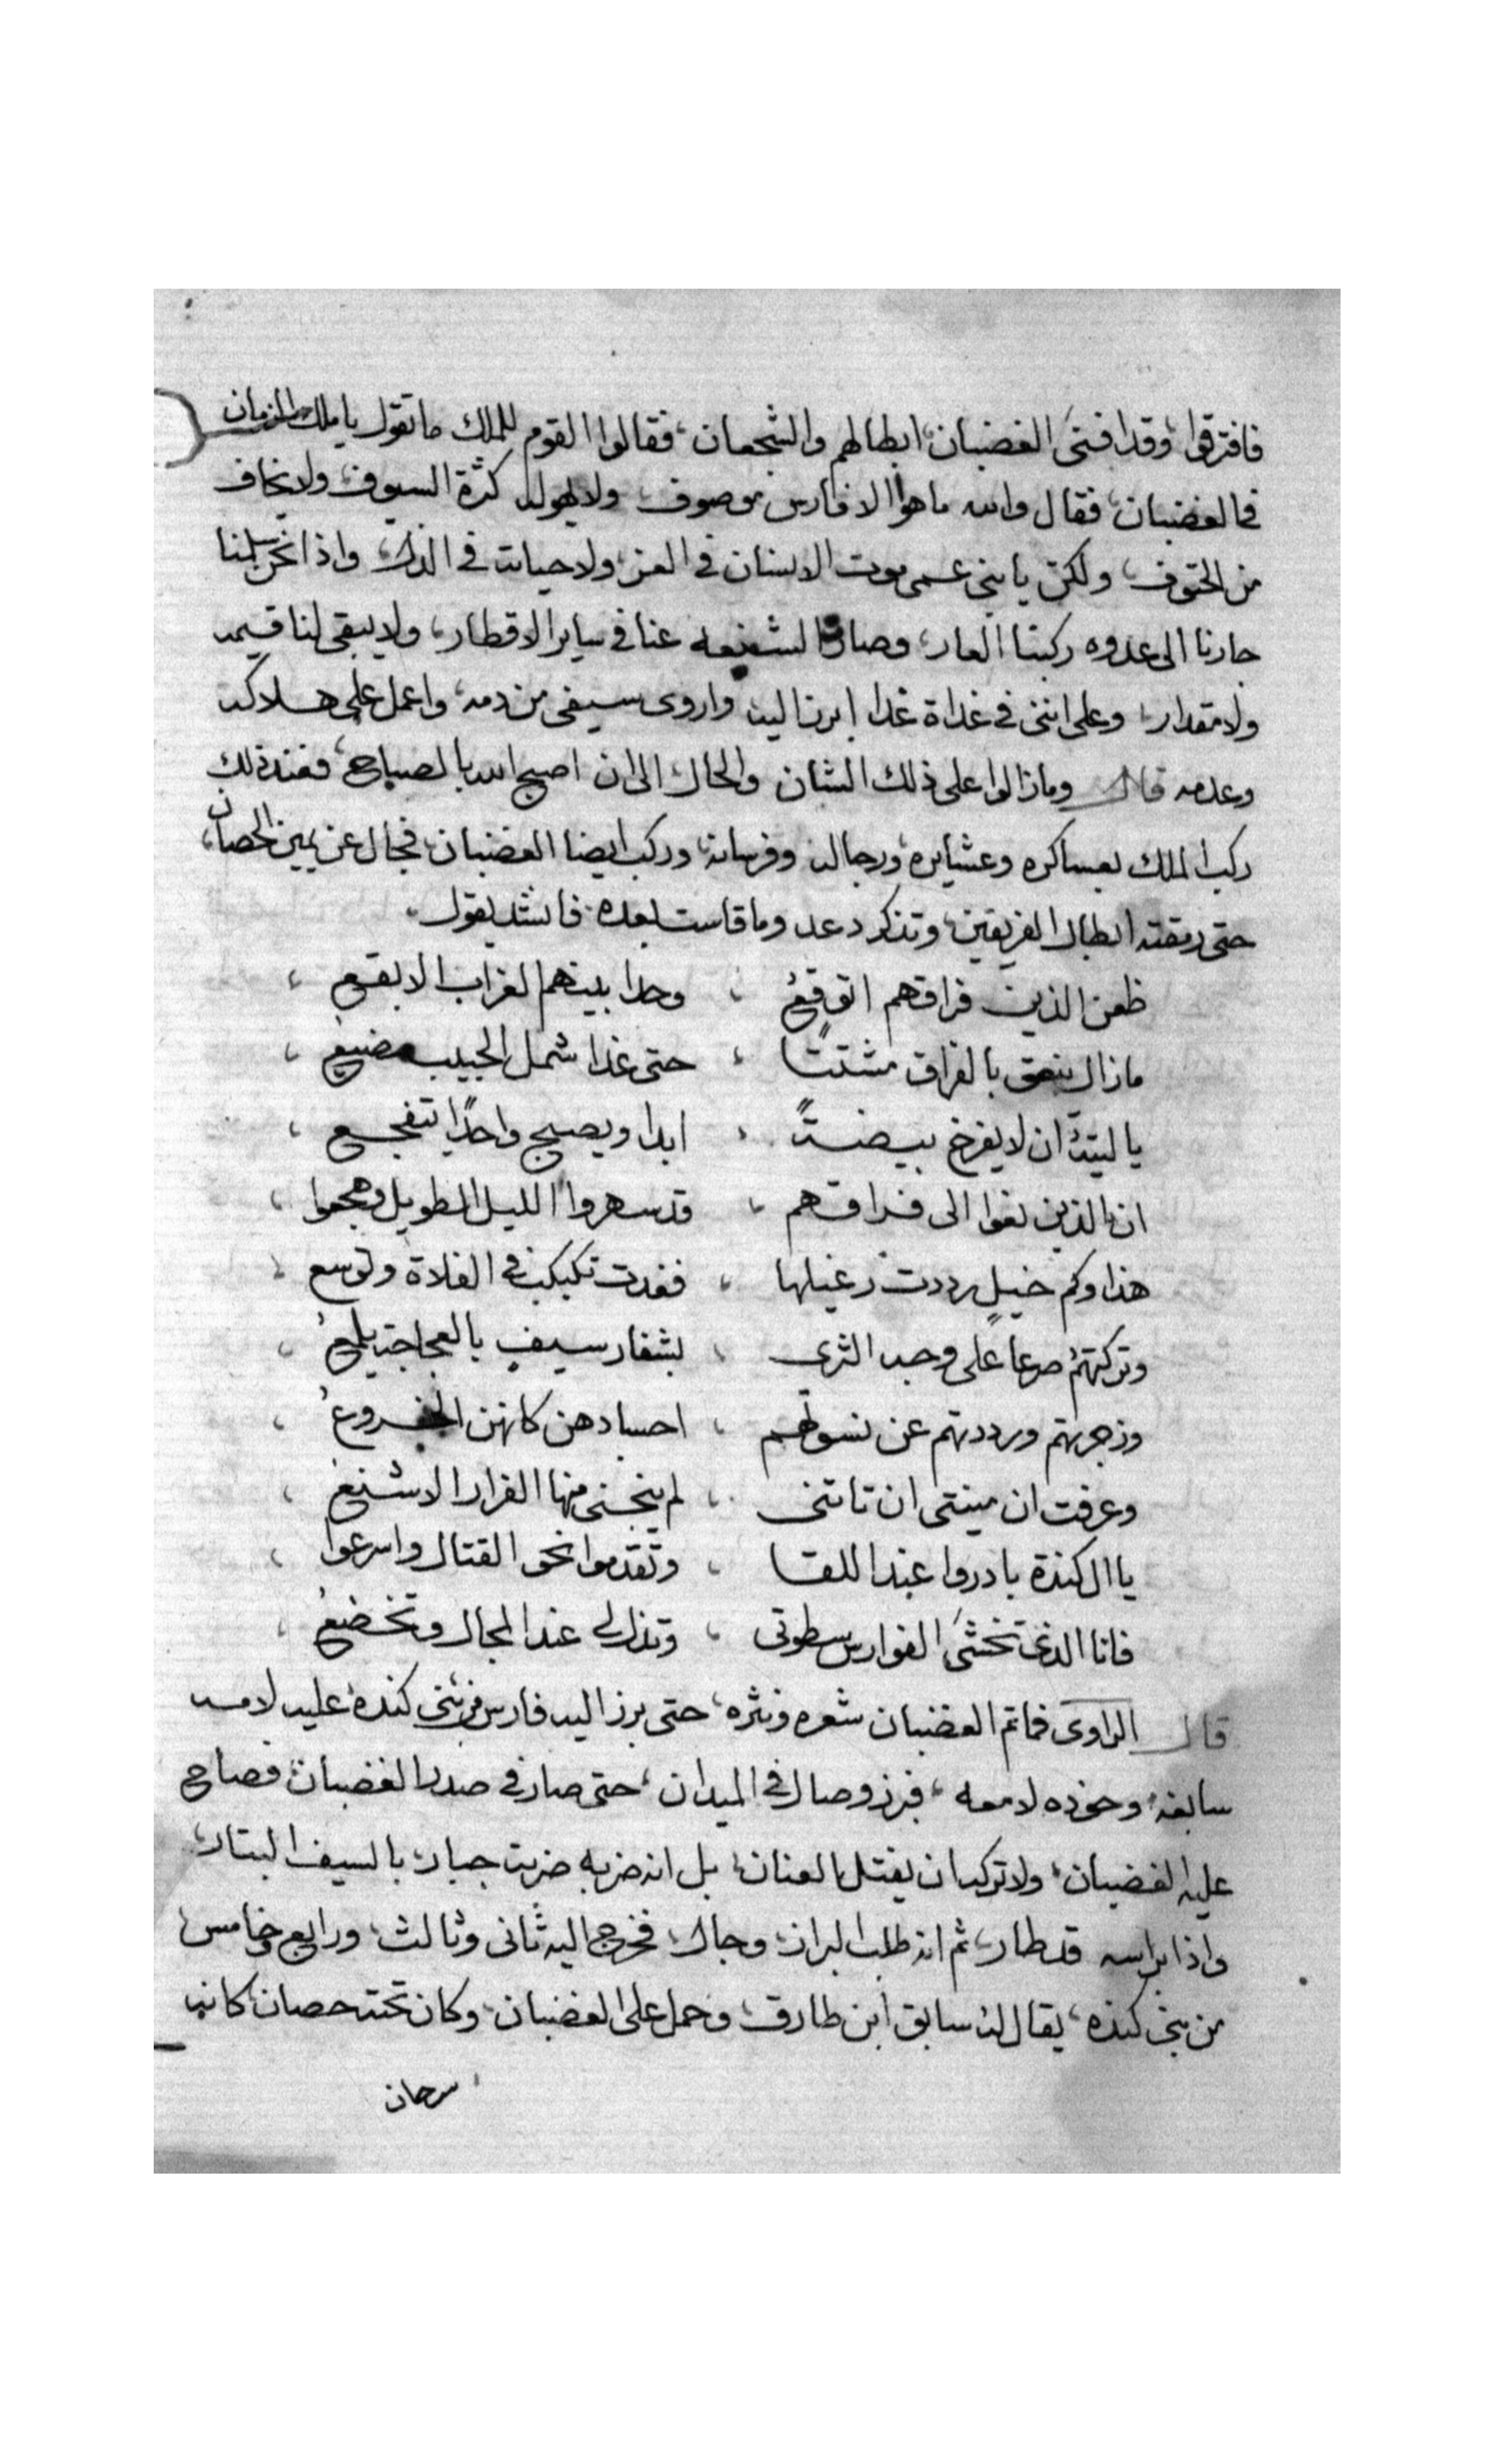 فافترقوا، وقد افنى الغضبان ابطالهم والشجعان، فقالوا القوم للملك ما تقول يا ملك الزمان
في الغضبان، فقال والله ما هوا الا فارس موصوف، ولا يهوله كثرة السيوف، ولا يخاف
من الحتوف، ولكن يا بني عمى موت الانسان في العز، ولا حياته في الذل، واذا نحن سلمنا
جارنا الى عدوه ركبنا العار، وصارة الشنيعه عنا في ساير الاقطار، ولا يبقى لنا قيمه
ولا مقدار، وعلى انني في غداة غدا ابرز اليه واروى سيفي من دمه، واعمل على هلاكه
وعدمه قال وما زالوا على ذلك الشان والحال، الى ان اصبح الله بالصباح، فعند ذلك
ركب الملك بعساكره وعشايره، ورجاله وفرسانه، وركب ايضا الغضبان، فجال عن يمين الحصان،
حتى رمقته ابطال الفريقين، وتذكر دعد وما قاست بعده، فانشد يقول،
ظعن الذين فراقهم اتوقع ، وحدا ببينهم الغراب الابقع ،
مازال ينعق بالفراق مشتتًا ، حتى غدا شمل الحبيب مضيع ،
يا ليتهُ ان لا يفرخ بيضتةً ، ابدا ويصبح واحدًا يتفجع ،
ان الذين نعوا الى فراقهم ، قد سهروا الليل الطويل وهجعوا ،
هذا وكم خيلٍ رددت رعيلها ، فغدت تكبكب في الفلاة وتوسع ،
وتركتهمُ صرعا على وجه الثرى ، بشفار سيفٍ بالعجاجة يلمعُ ،
وزجرتهم ورددتهم عن نسوتهم ، اجسادهن كانهن الخروعُ ،
وعرفت ان مينتى ان تاتنى ، لم ينجنى منها الفرار الاشنع ،
يا ال كندة بادروا عند اللقا ، وتقدموا نحو القتال واسرعوا ،
فانا الذي تخشى الفوارس سطوتى ، وتذل لى عند المجال وتخضعُ ،
قال الراوى فما تم الغضبان شعره ونثره، حتى برز اليه فارس من بنى كنده، عليه لامه
سابغه، وخوذه لامعه، فبرز وصال في الميدان، حتى صار في صدر الغضبان، فصاح
عليه الغضبان، ولا تركه ان يفتل العنان، بل انه ضربه ضربة جبار، بالسيف البتار،
واذا براسه قد طار، ثم انه طلب البراز، وجال، فخرج اليه ثانى وثالث، ورابع وخامس،
من بنى كنده، يقال له سابق ابن طارق، وحمل على الغضبان، وكان تحته حصان كانه
سرحان